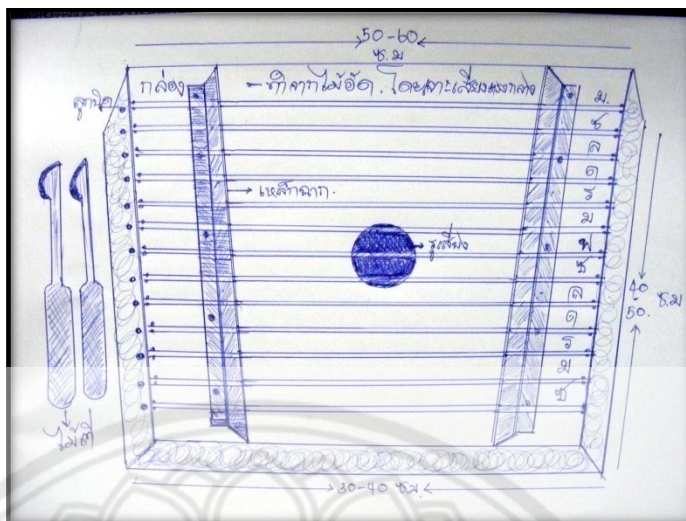 50-60
ซ.ม
กล่อง - ทำจากไม้อัด. โดยเจาะเสียงตรงกลาง
ลูกบิด
เหล็กฉาก.
รูเสียง
ม.
ซ
ล
ด
ร
ม
ฟ
ซ
ล
ด
ร
ม
ซ
40
50. ซ.ม
ไม้ตี
30-40 ซม.